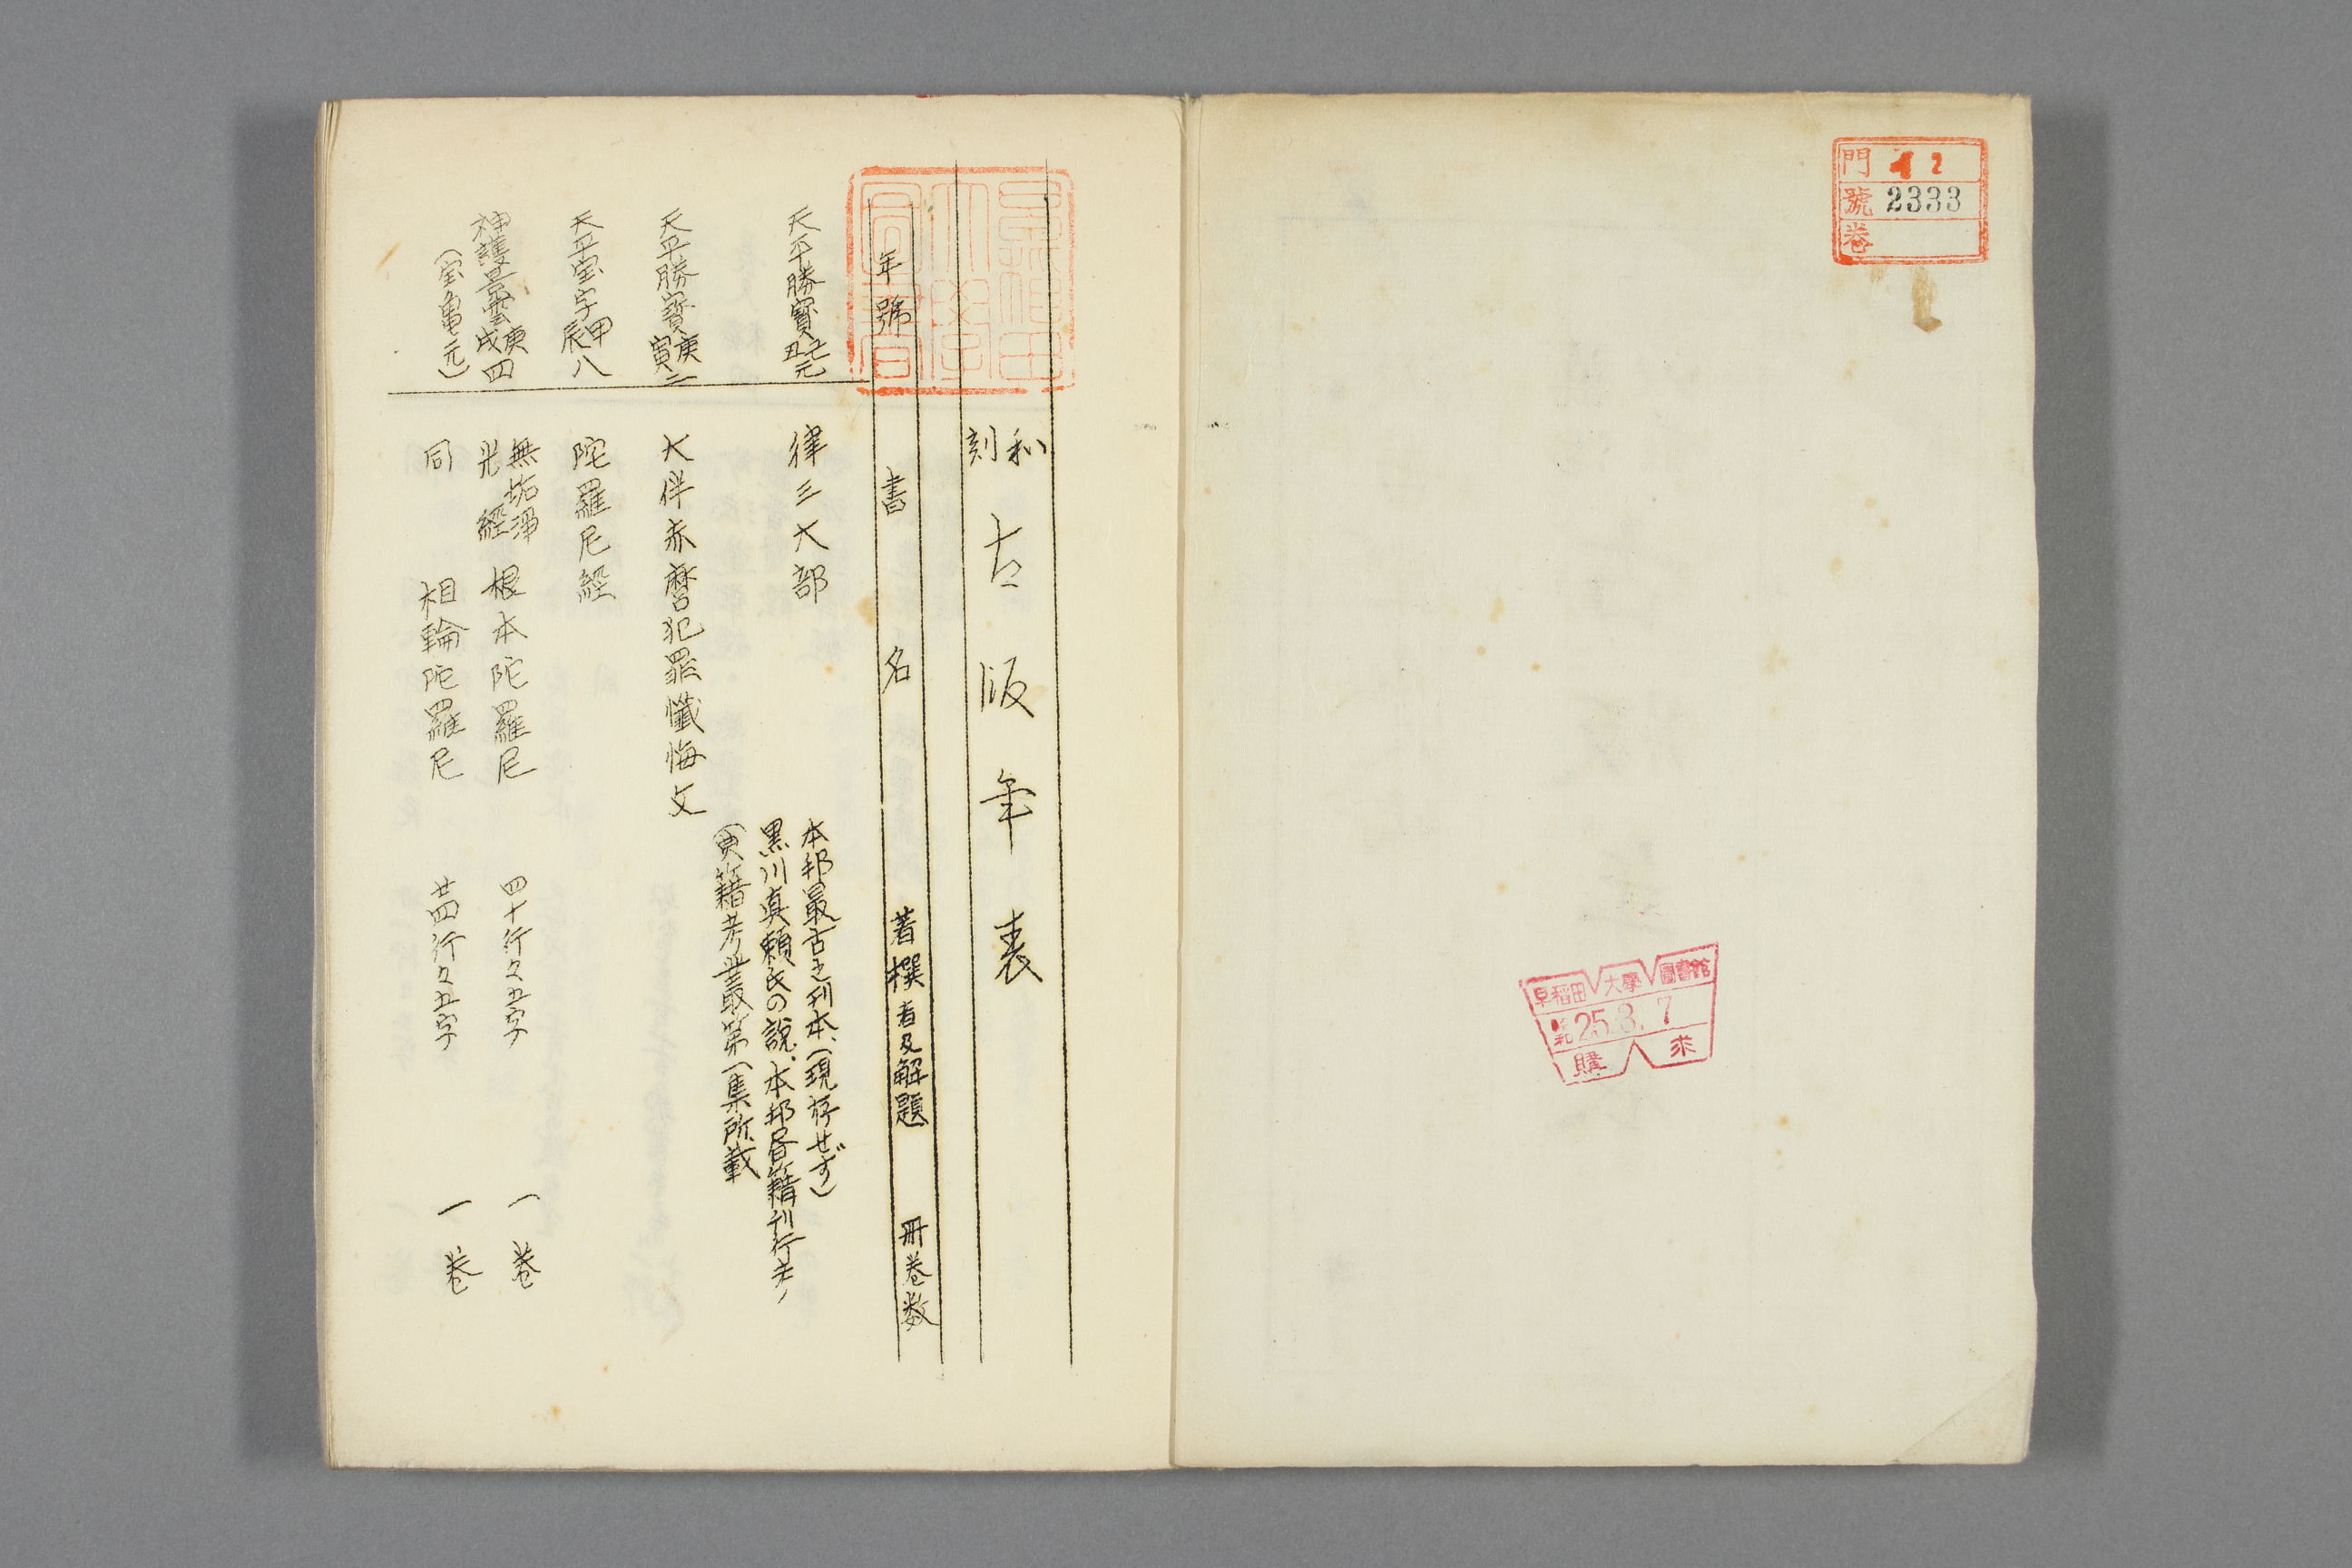 門 12
號 2333
卷
早稻田大學圖書館
昭和 25.3.7
購求
早稲田大學圖書
和刻 古版年表
年號 書名 著撰者及解題 冊卷数
天平勝寶己丑元 律三大部 本邦最古之刊本、(現存せず)
黒川真頼氏の説、本邦書籍刊行考、
(典籍考叢第一集所載
天平勝寶庚寅二 大伴赤麿犯罪懺悔文
天平宝字甲辰八 陀羅尼經
神護景雲庚戌四 無垢淨光經 根本陀羅尼 四十行々五字 一卷
(宝亀元) 同 相輪陀羅尼 廿四行々五字 一卷